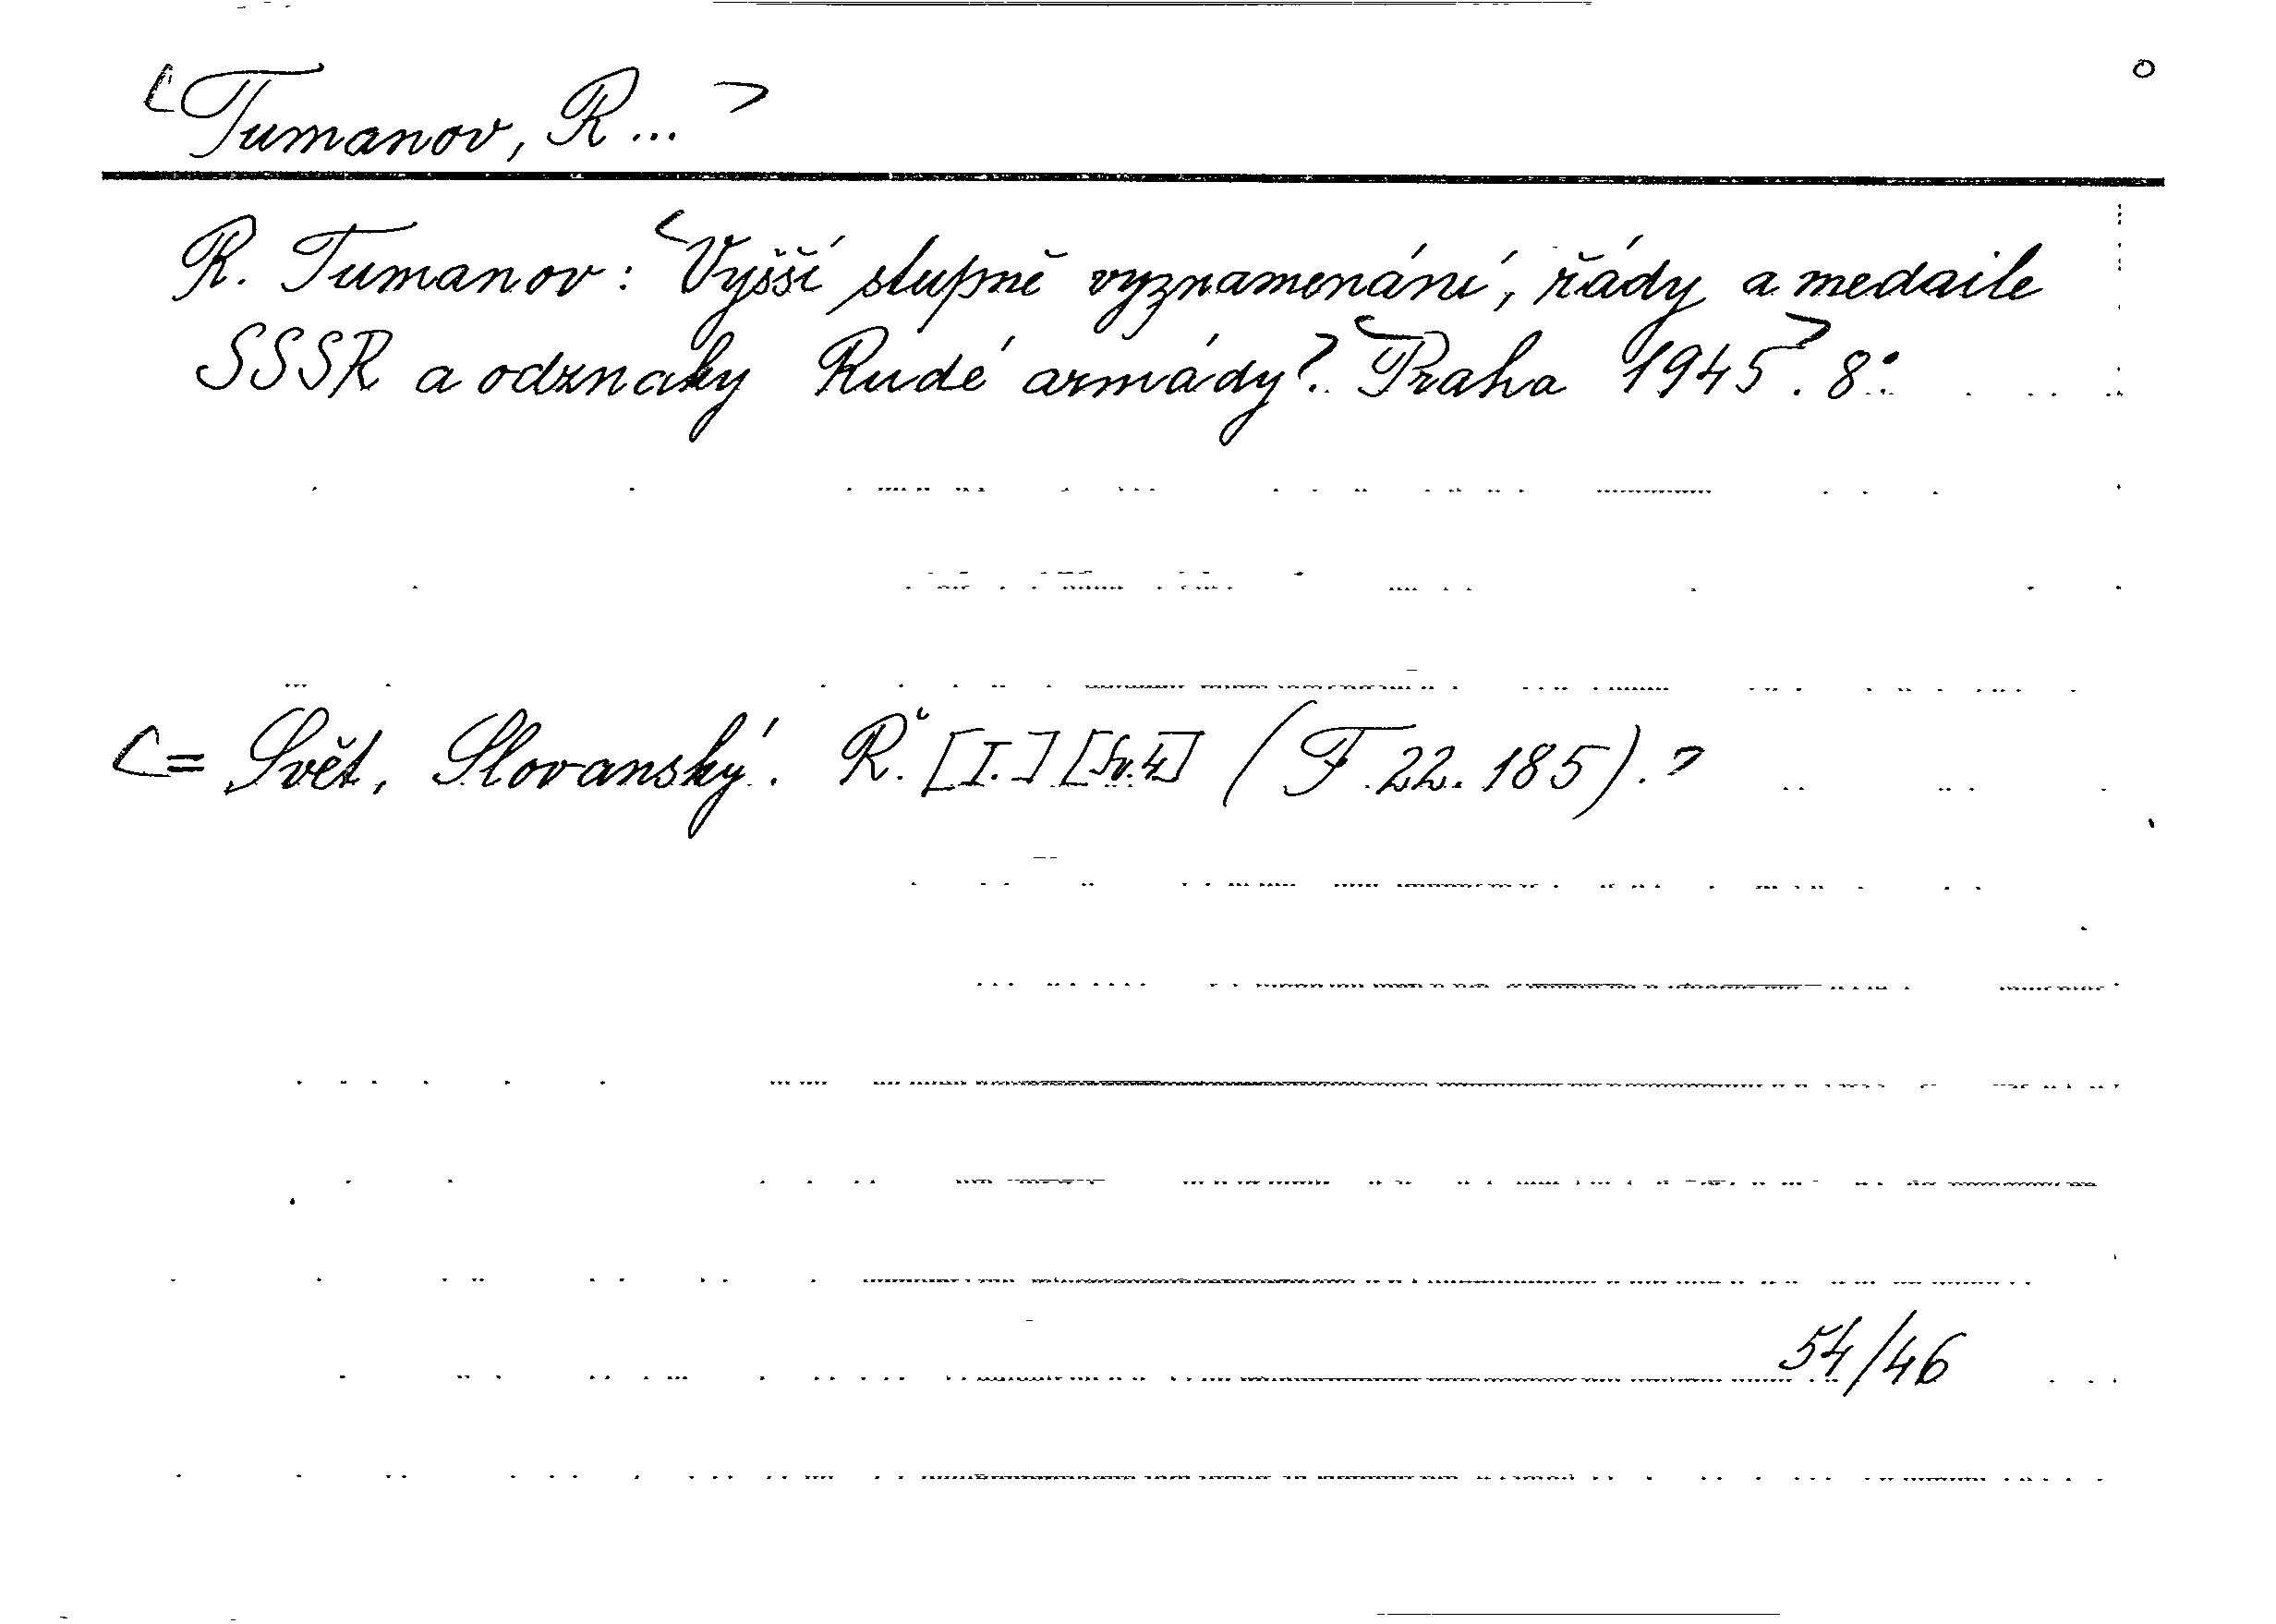 <Tumanov, R...>
R. Tumanov: <Vyšší stupně vyznamenání, řády a medaile
SSSR a odznaky Rudé armády>. <Praha 1945>. 8°.
<= Svět, Slovanský. Ř. [I.] [Sv.4] (F 22.185).>
54/46